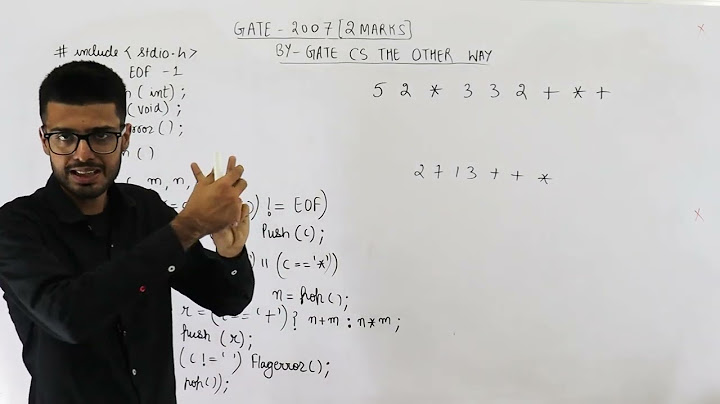 GATE - 2007 [2 MARKS]
BY- GATE CS THE OTHER WAY
# include < stdio.h>
EOF -1
(int);
(void);
();
()
m, n,
) != EOF)
Push (c);
') || (c == '*'))
n = pop();
r = (c == '+') ? n+m : n*m;
push (r);
(c != ' ') Flagerror();
pop());
5 2 * 3 3 2 + * +
2 7 1 3 + + *
x
x